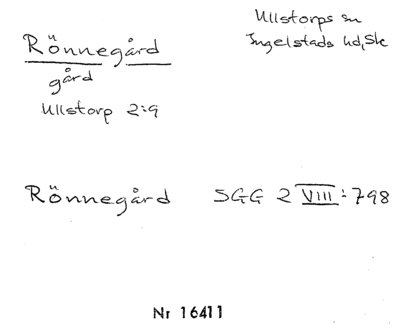 Rönnegård
gård
Ullstorp 2:9
Ullstorps sn
Ingelstads hd, Sk
Rönnegård SGG 2 VIII:798
Nr 16411